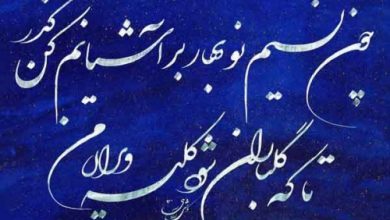 چون نسیم نوبهار بر آشیانم کن گذر
تا که گلباران شود کلبه ویران من